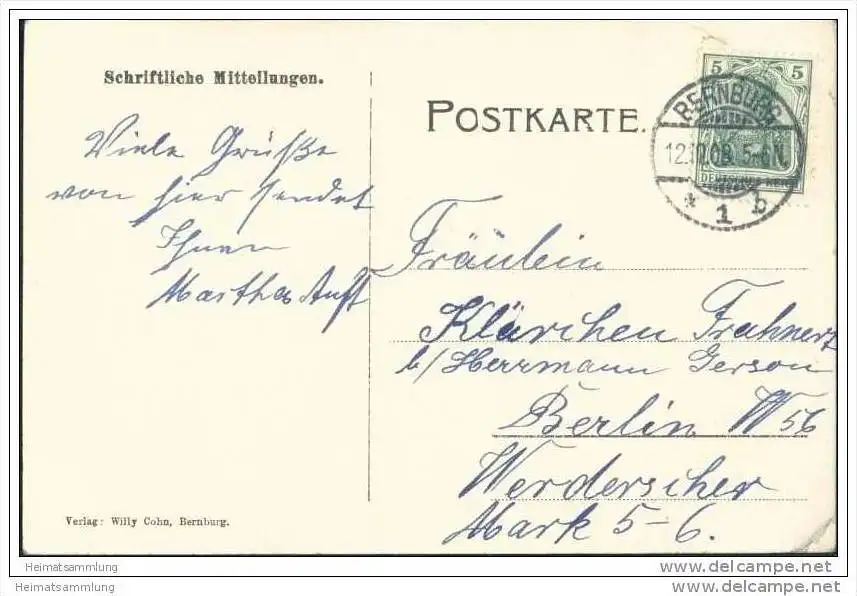 Schriftliche Mitteilungen.
POSTKARTE.
5 5
DEUTSCHES REICH
BERNBURG
5-6N.
* 1 b
Viele Grüße
von hier sendet
Ihnen
Martha
Fräulein
Klärchen Frahnert
b/Herrmann Gerson
Berlin W 56
Werderscher
Markt 5-6.
Verlag: Willy Cohn, Bernburg.
Heimatsammlung
Heimatsammlung
www.oldthing.de
www.oldthing.de